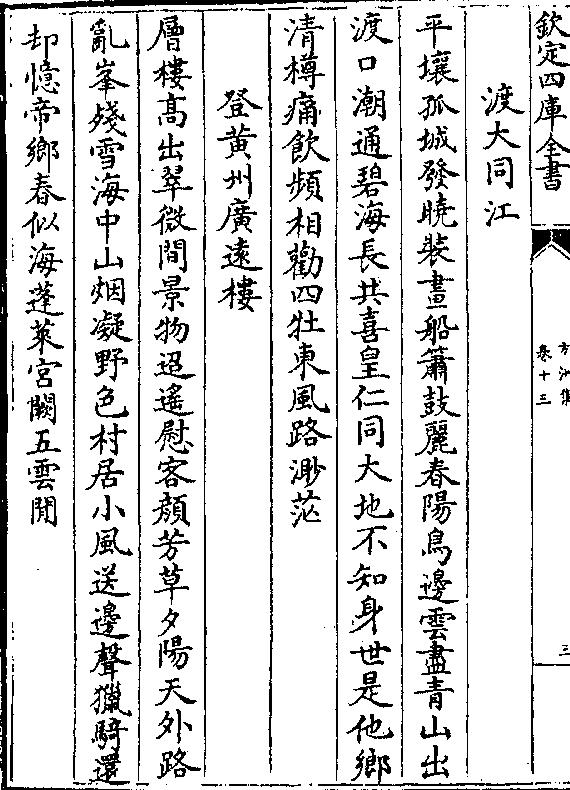 欽定四庫全書
方洲集
卷十三
三
渡大同江
平壤孤城發曉裝畫船簫鼓麗春陽鳥邊雲盡青山出
渡口潮通碧海長共喜皇仁同大地不知身世是他鄉
清樽痛飲頻相勸四牡東風路渺茫
登黃州廣遠樓
層樓高出翠微間景物迢遙慰客顔芳草夕陽天外路
亂峯殘雪海中山烟凝野色村居小風送邊聲獵騎還
却憶帝鄉春似海蓬萊宮闕五雲閒